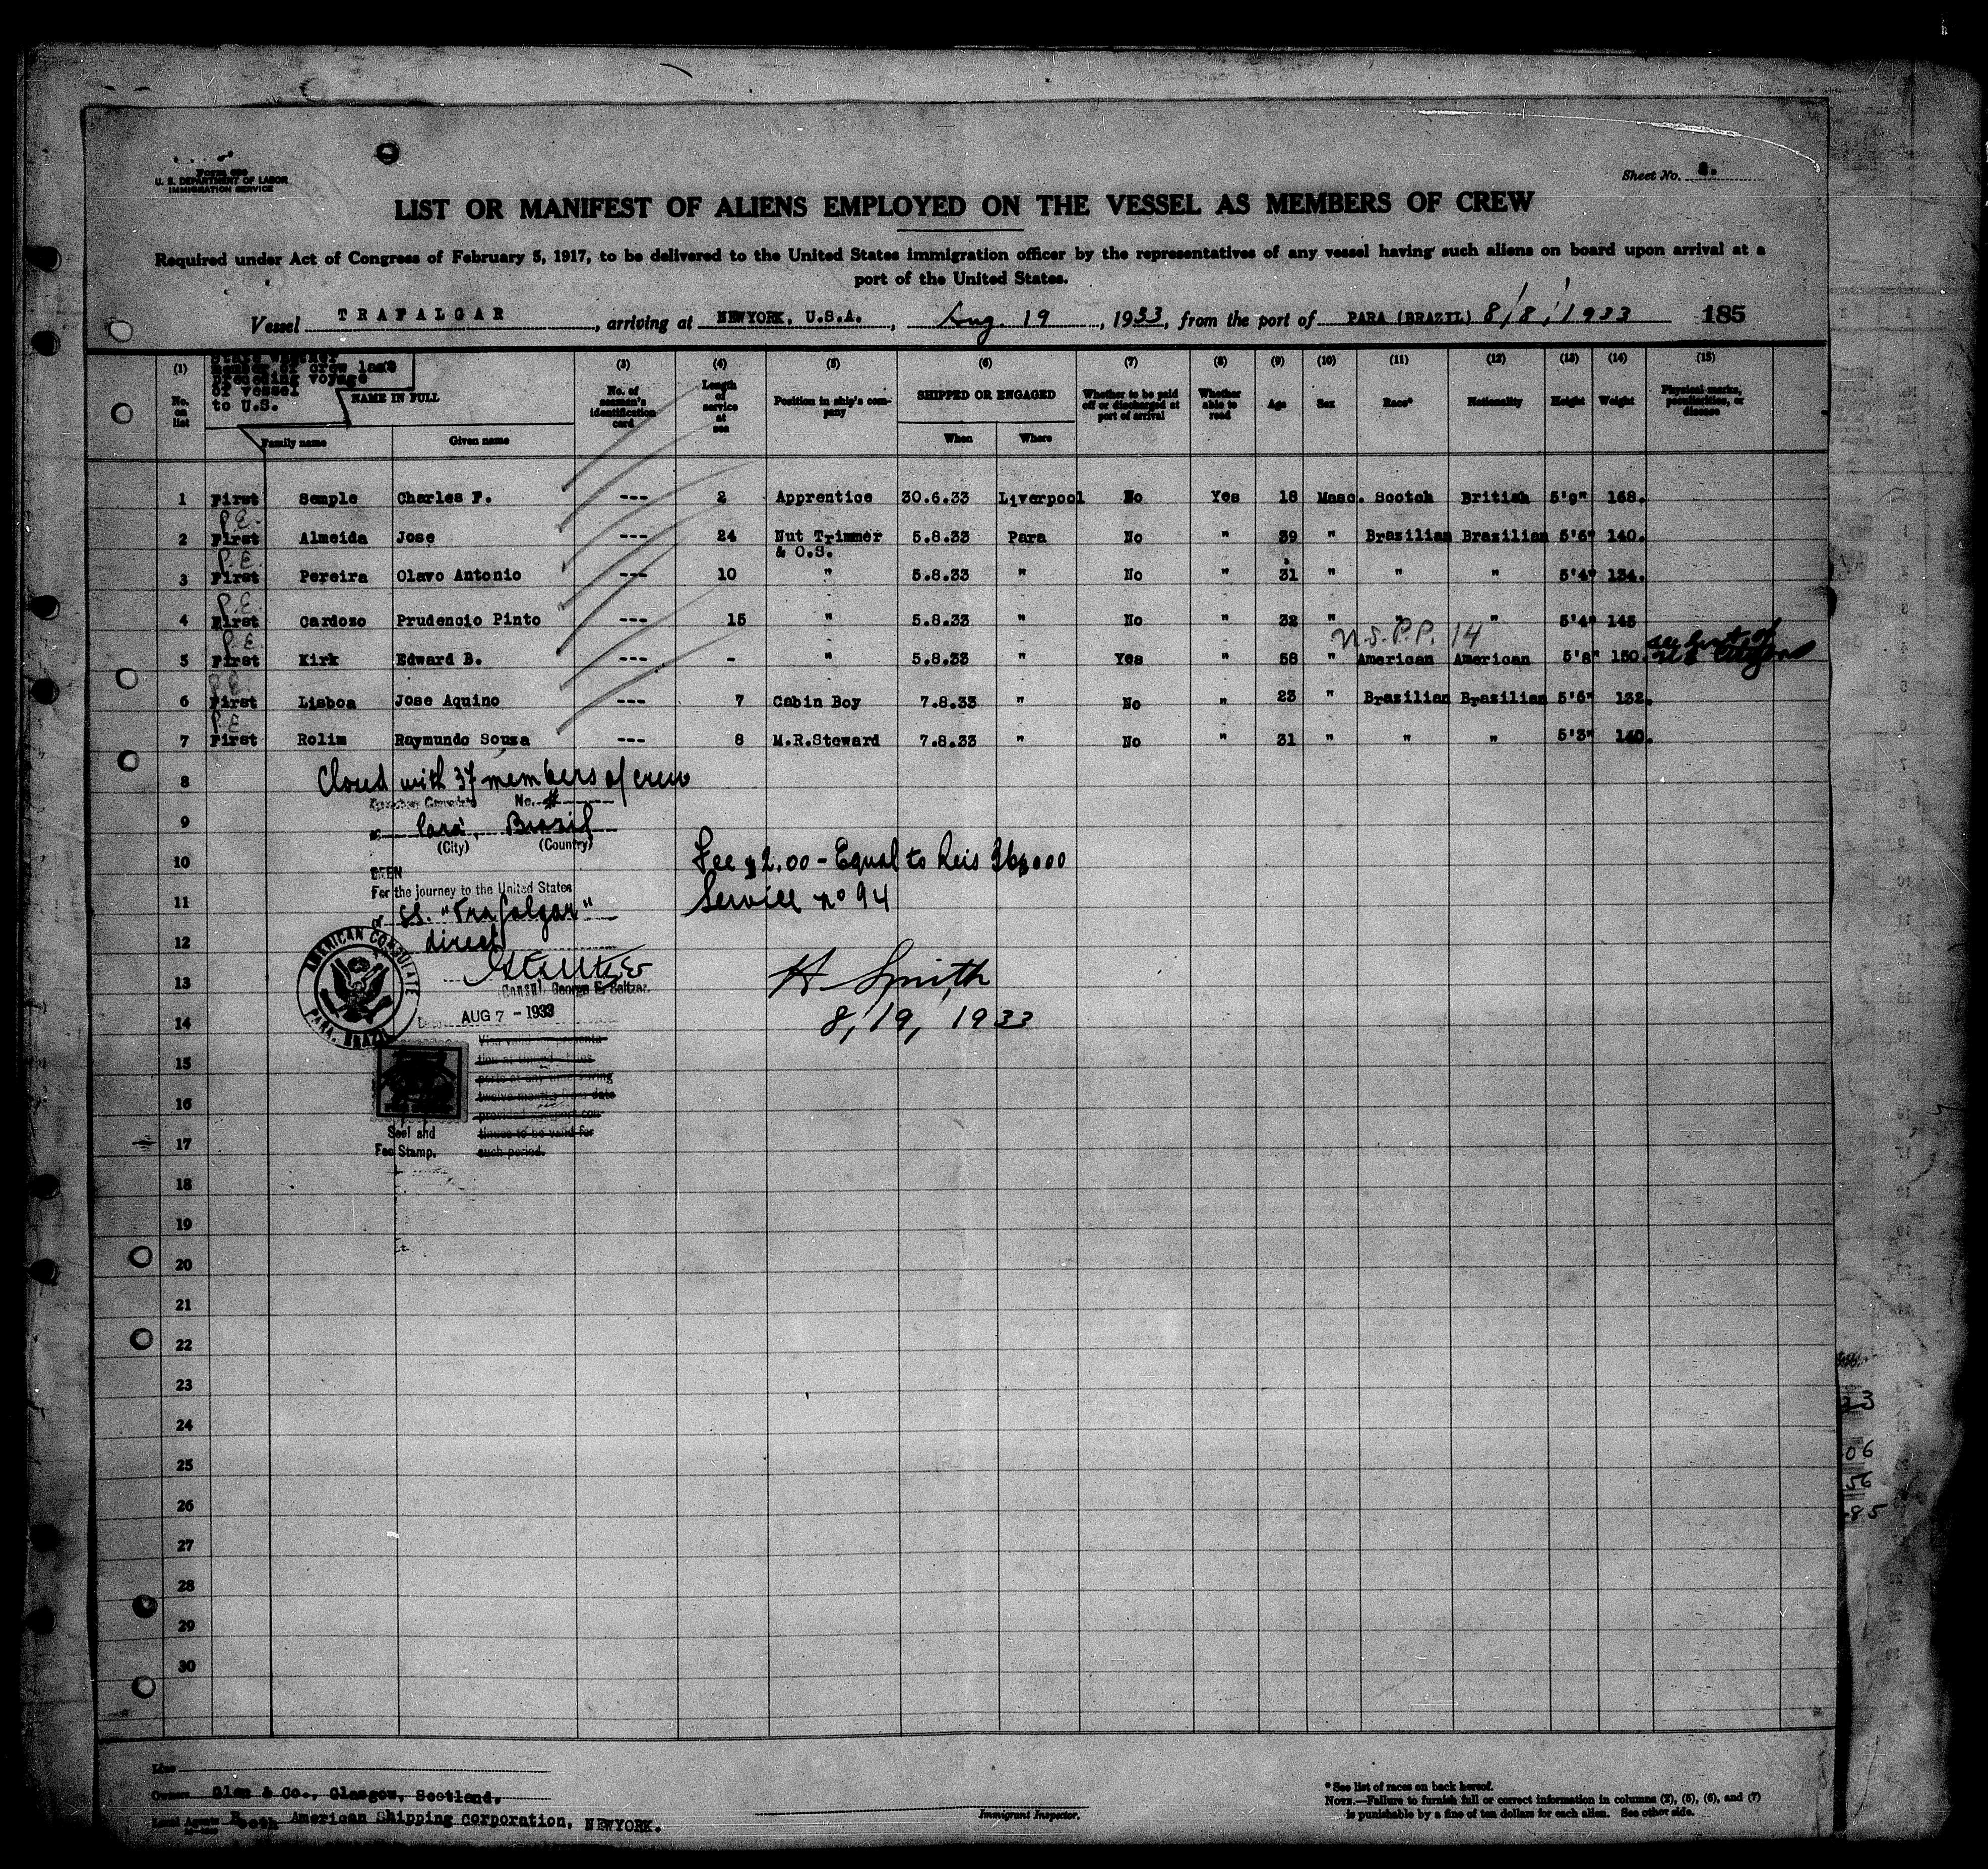 U. S. DEPARTMENT OF LABOR
IMMIGRATION SERVICE
Sheet No.
LIST OR MANIFEST OF ALIENS EMPLOYED ON THE VESSEL AS MEMBERS OF CREW
Required under Act of Congress of February 5, 1917, to be delivered to the United States immigration officer by the representatives of any vessel having such aliens on board upon arrival at a
port of the United States.
Vessel TRAFALGAR, arriving at NEWYORK, U.S.A., Aug. 19, 1933, from the port of PARA (BRAZIL) 8/8/1933 185
(1) No. on list
State whether member of crew last preceding voyage of vessel to U.S.
NAME IN FULL
Family name Given name
(3) No. of seaman's identification card
(4) Length of service at sea
(5) Position in ship's company
(6) SHIPPED OR ENGAGED
When Where
(7) Whether to be paid off or discharged at port of arrival
(8) Whether able to read
(9) Age
(10) Sex
(11) Race*
(12) Nationality
(13) Height
(14) Weight
(15) Physical marks, peculiarities, or disease
1 First Semple Charles F. --- 2 Apprentice 30.6.33 Liverpool No Yes 18 Masc. Scotch British 5'9" 168.
P.E.
2 First Almeida Jose --- 24 Nut Trimmer & O.S. 5.8.33 Para No " 39 " Brazilian Brazilian 5'5" 140.
P.E.
3 First Pereira Olavo Antonio --- 10 " 5.8.33 " No " 31 " " " 5'4" 134.
P.E.
4 First Cardozo Prudencio Pinto --- 15 " 5.8.33 " No " 32 " " " 5'4" 145
P.E. N.S.P.P. 14
5 First Kirk Edward B. --- - " 5.8.33 " Yes " 58 " American American 5'8" 150.
P.E.
6 First Lisboa Jose Aquino --- 7 Cabin Boy 7.8.33 " No " 23 " Brazilian Brazilian 5'6" 132.
P.E
7 First Rolim Raymundo Souza --- 8 M.R.Steward 7.8.33 " No " 31 " " " 5'3" 140.
8 Closed with 37 members of crew
No.
9 Para, Brazil
(City) (Country)
10 Fee $2.00 - Equal to Reis
SEEN
For the journey to the United States
11 Service no 94
SS. "Trafalgar"
12 direct
AMERICAN CONSULATE
PARA, BRAZIL
13 H Smith
Consul George E. Seltzer.
14 8/19, 1933
AUG 7 - 1933
Visa valid for presentation at United States
15
ports at any time during
16 twelve months from date
provided passport con-
17 tinues to be valid for
such period.
Seal and
Fee Stamp.
18
19
20
21
22
23
24
25
26
27
28
29
30
Line
Owners Glen & Co., Glasgow, Scotland.
Local Agents Booth American Shipping Corporation, NEWYORK.
Immigrant Inspector.
* See list of races on back hereof.
NOTE.—Failure to furnish full or correct information in columns (2), (5), (6), and (7)
is punishable by a fine of ten dollars for each alien. See other side.